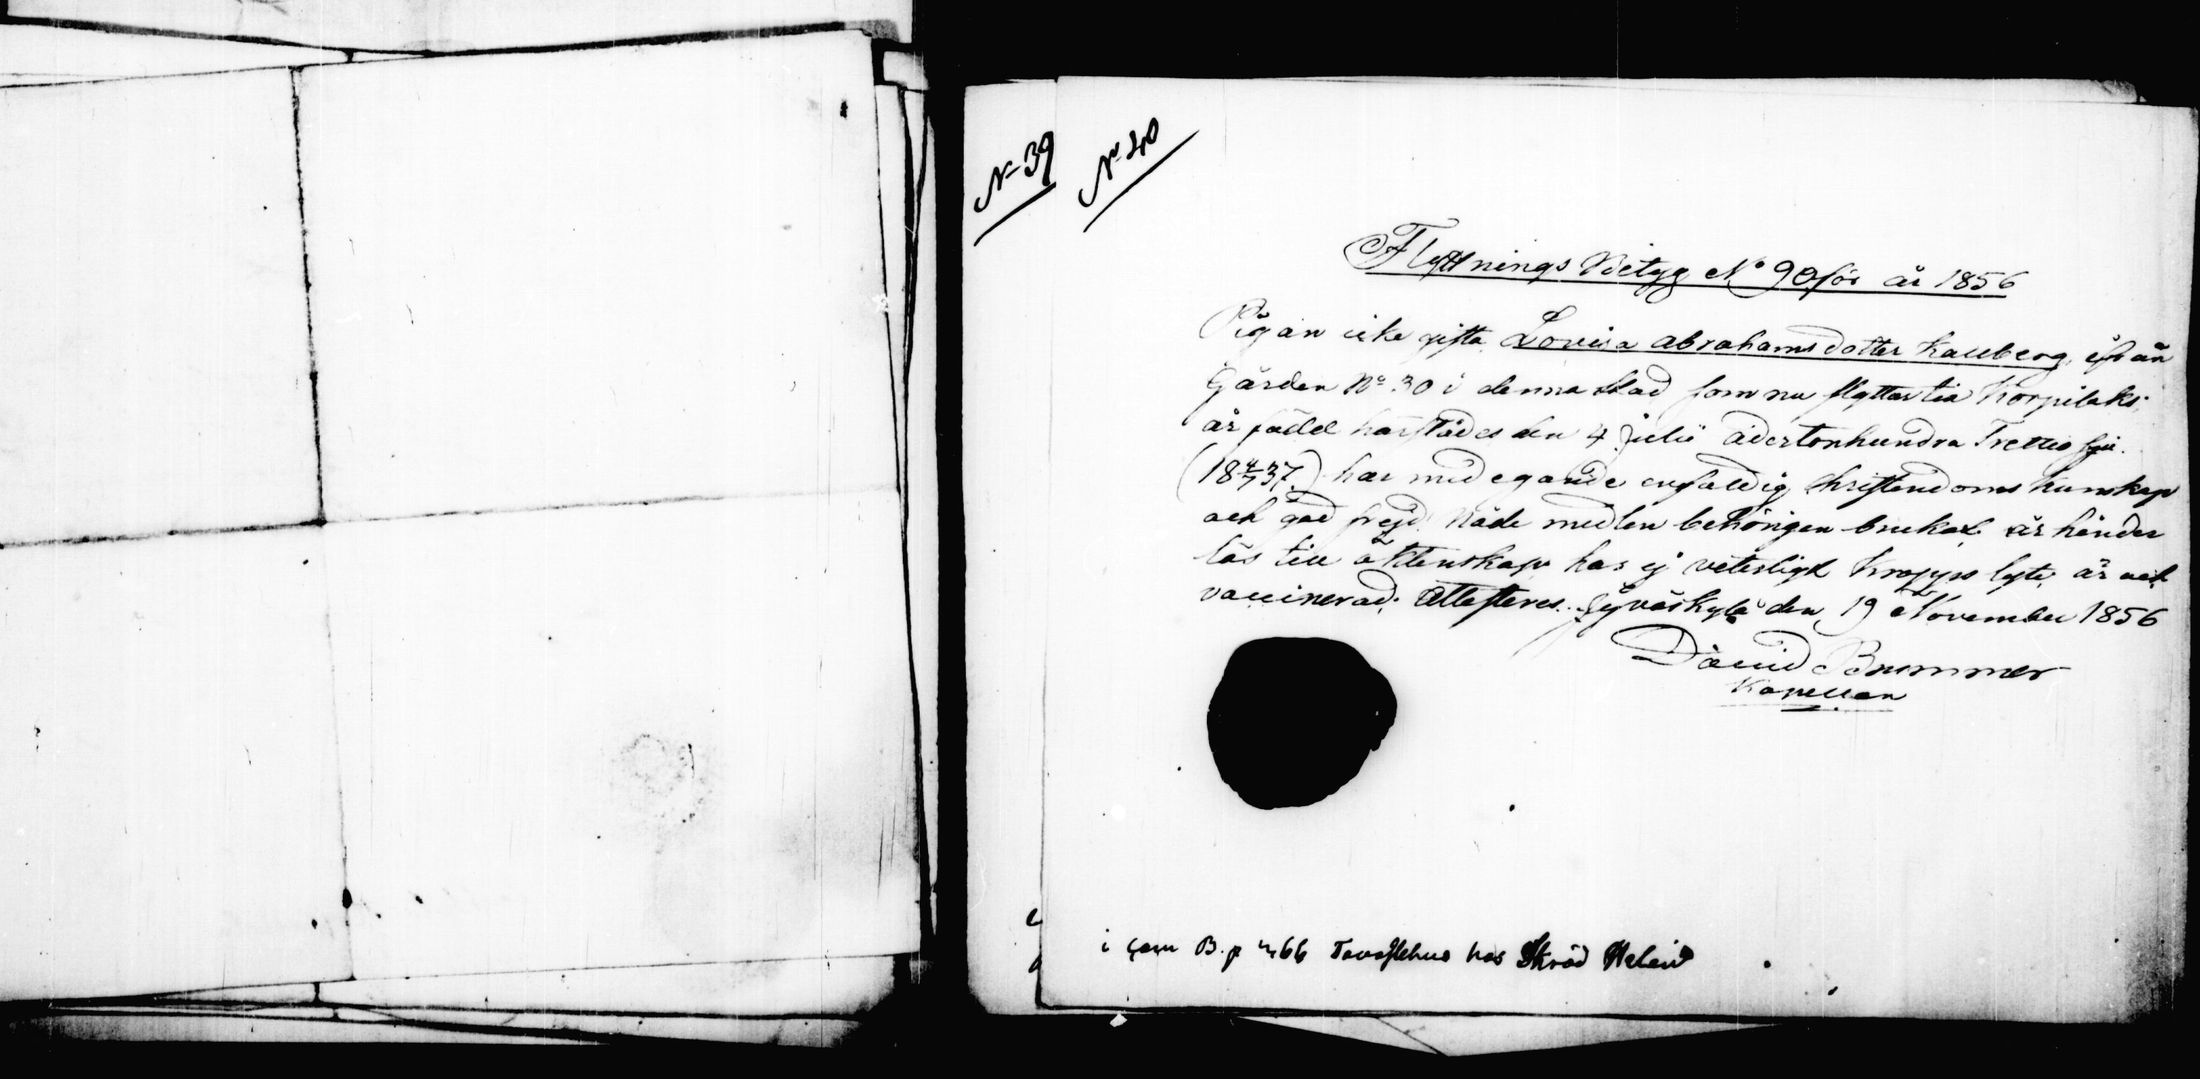 N 39
N 40
Flyttnings Betyg No 90 för år 1856
Pigan icke gifta Lovisa abrahamsdotter Kallberg ifrån
Gården No 30 i denna stad som nu flyttar till Korpilaks;
är född härstädes den 4 juli adertonhundra Trettio sju.
(18 4/7 37.) har med egande enfaldig Christendoms kunskap
och god frejd Nåde medlen behörigen brukat är hinders
lös till äktenskap har ej veterligt kropps lyte, är ock
vaccinerad. Attesteres. Jyväskylä den 19 November 1856
David Brummer
Kapellan
i B. p 466 Tavastehus hos Skräd